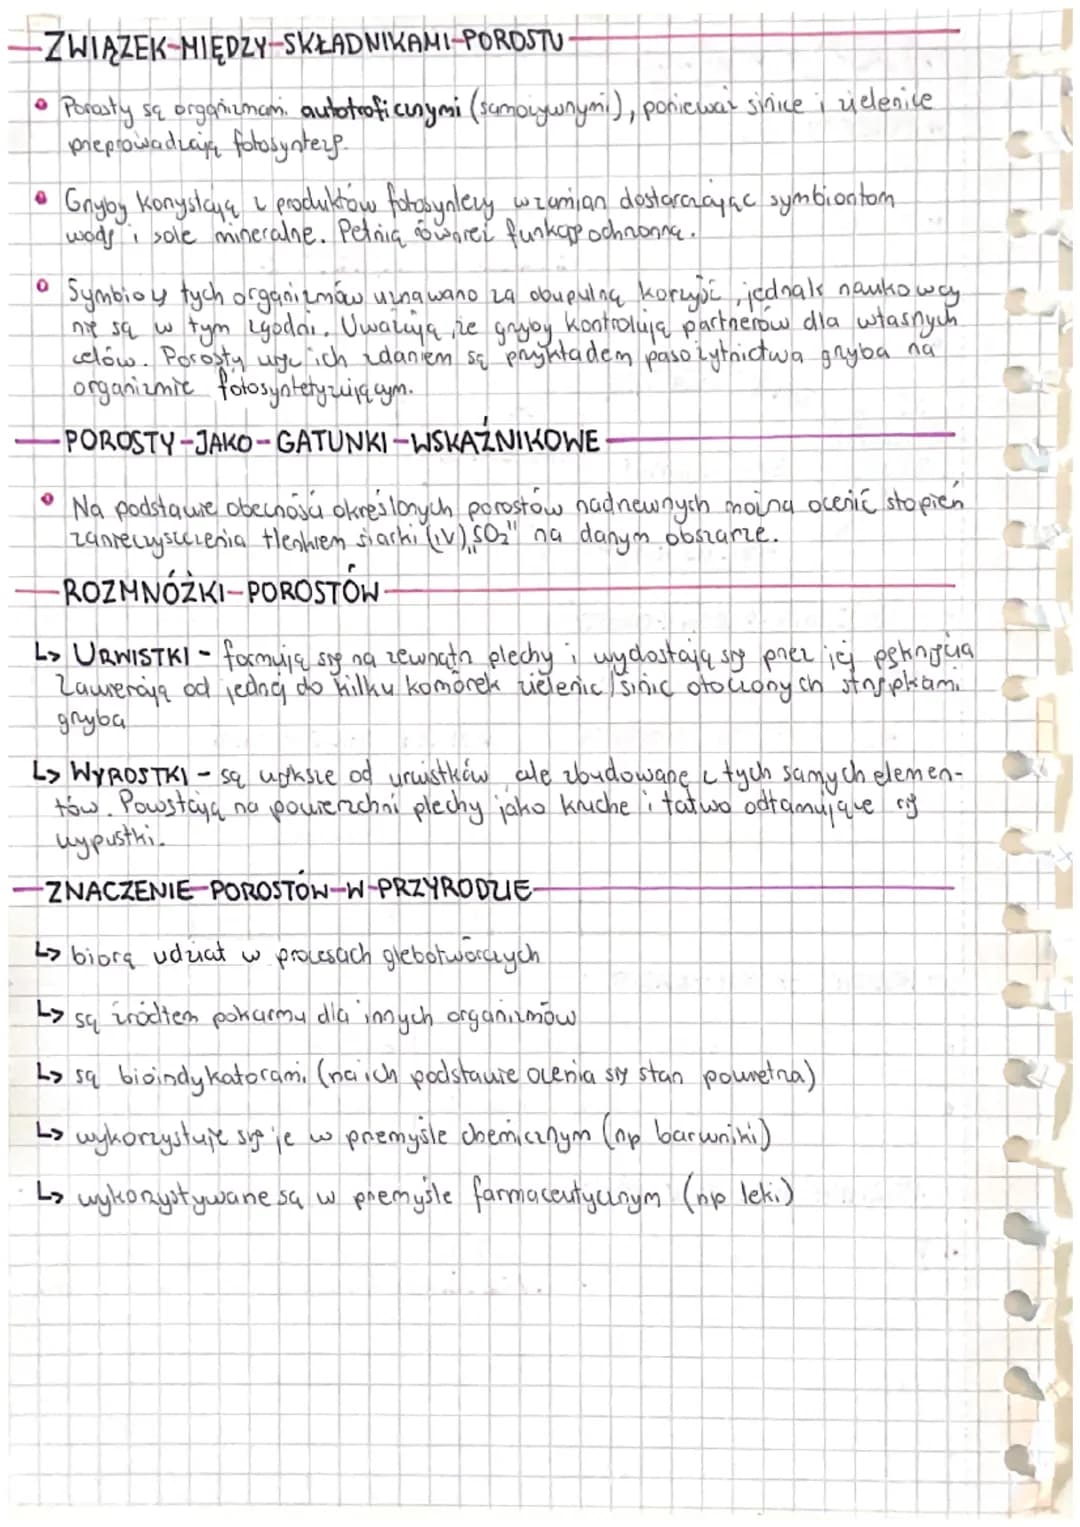 ZWIĄZEK-MIĘDZY-SKŁADNIKAMI-POROSTU
Porosty są organizmami autotroficznymi (samożywnymi), ponieważ sinice i zielenice
przeprowadzają fotosyntezę.
Grzyby korzystają z produktów fotosyntezy w zamian dostarczając symbiontom
wodę i sole mineralne. Pełnią również funkcję ochronną.
Symbiozę tych organizmów uznawano za obupulną korzyść, jednak naukowcy
nie są w tym zgodni. Uważają, że grzyby kontrolują partnerów dla własnych
celów. Porosty więc ich zdaniem są przykładem pasożytnictwa grzyba na
organizmie fotosyntetyzującym.
POROSTY-JAKO-GATUNKI-WSKAŹNIKOWE
Na podstawie obecności określonych porostów nadrzewnych można ocenić stopień
zanieczyszczenia tlenkiem siarki (IV) „SO₂" na danym obszarze.
ROZMNÓŻKI-POROSTÓW
↳ URWISTKI - formują się na zewnątrz plechy i wydostają się przez jej pęknięcia
Zawierają od jednej do kilku komórek zielenic/sinic otoczonych strzępkami
grzyba
↳ WYROSTKI - są większe od urwistków ale zbudowane z tych samych elemen-
tów. Powstają na powierzchni plechy jako kruche i łatwo odłamujące się
wypustki.
ZNACZENIE-POROSTÓW-W-PRZYRODZIE
↳ biorą udział w procesach glebotwórczych
↳ są źródłem pokarmu dla innych organizmów
↳ są bioindykatorami (na ich podstawie ocenia się stan powietrza)
↳ wykorzystuje się je w przemyśle chemicznym (np barwniki)
↳ wykorzystywane są w przemyśle farmaceutycznym (np leki)